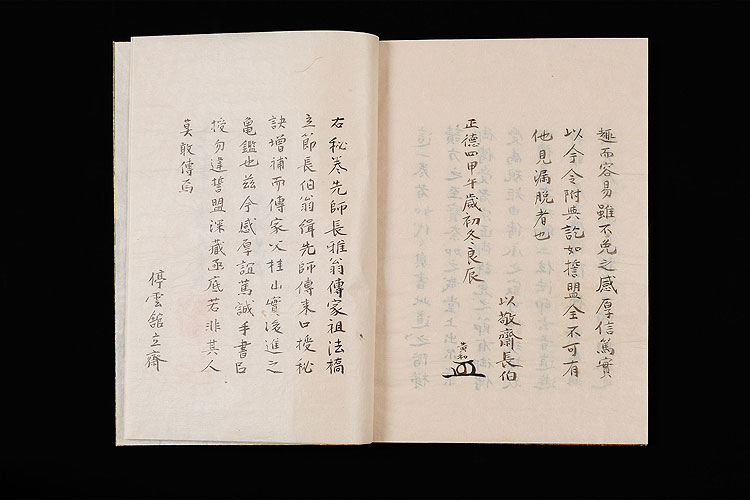 趣而容易雖不免之感厚信篤實
以今令附與訖如誓盟全不可有
他見漏脱者也
正德四甲午歳初冬良辰
以敬齋長伯
右秘巻先師長雅翁傳家祖法橋
立節長伯翁緝先師傳来口授秘
訣増補而傳家父桂山實後進之
亀鑑也茲今感厚誼篤誠手書以
授勿違誓盟深藏函底若非其人
莫敢傳焉
停雲舘立齋